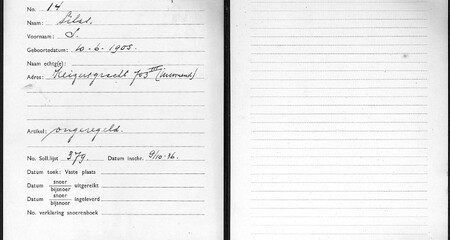 No. 14
Naam: Silas.
Voornaam: S.
Geboortedatum: 20-6-1905.
Naam echtg(e):
Adres: Keizersgracht 703 III
Artikel: ongeregeld.
No. Soll.lijst 379. Datum inschr. 9/10-36.
Datum toek: Vaste plaats
Datum snoer/bijsnoer uitgereikt
Datum snoer/bijsnoer ingeleverd
No. verklaring snoerenboek